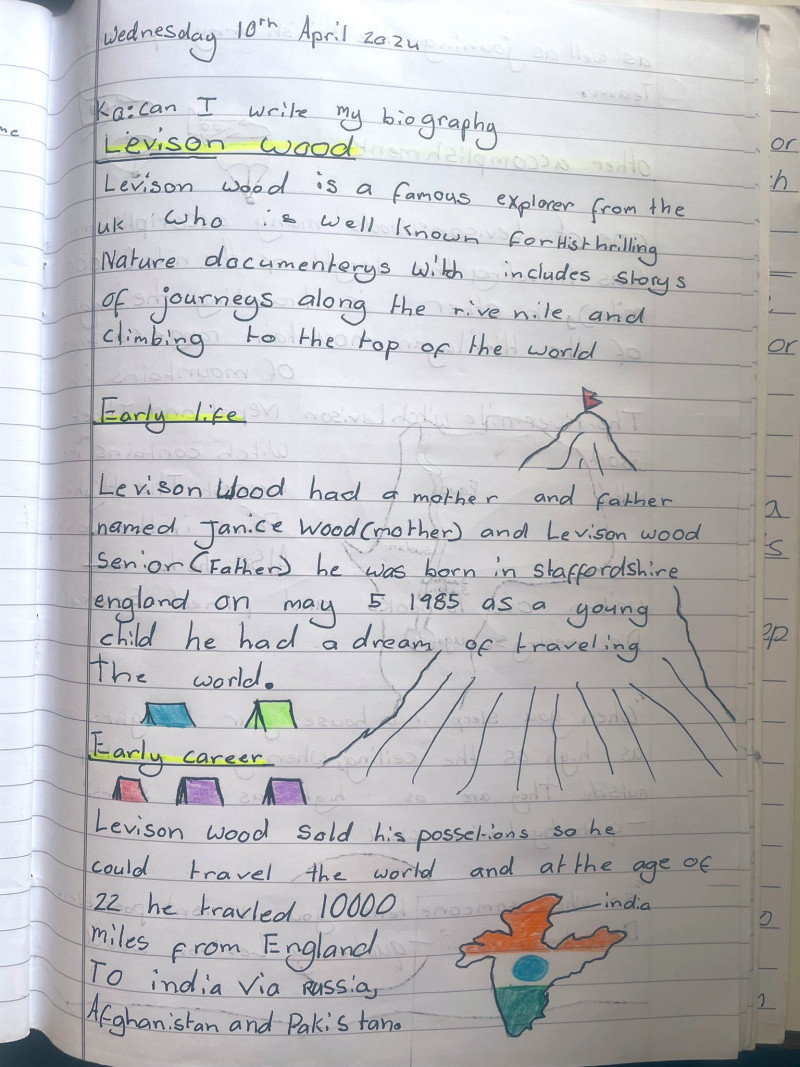 Wednesday 10th April 2024
Ka: can I write my biography
Levison wood
Levison wood is a famous explorer from the
uk who is well known for His thrilling
Nature documenterys with includes storys
of journeys along the rive nile, and
climbing to the top of the world
Early life
Levison Wood had a mother and father
named Janice Wood (mother) and Levison wood
senior (Father) he was born in staffordshire
england on may 5 1985 as a young
child he had a dream of traveling
the world.
Early career
Levison wood sold his possetions so he
could travel the world and at the age of
22 he travled 10000
india
miles from England
To india via Russia,
Afghanistan and Pakistan.